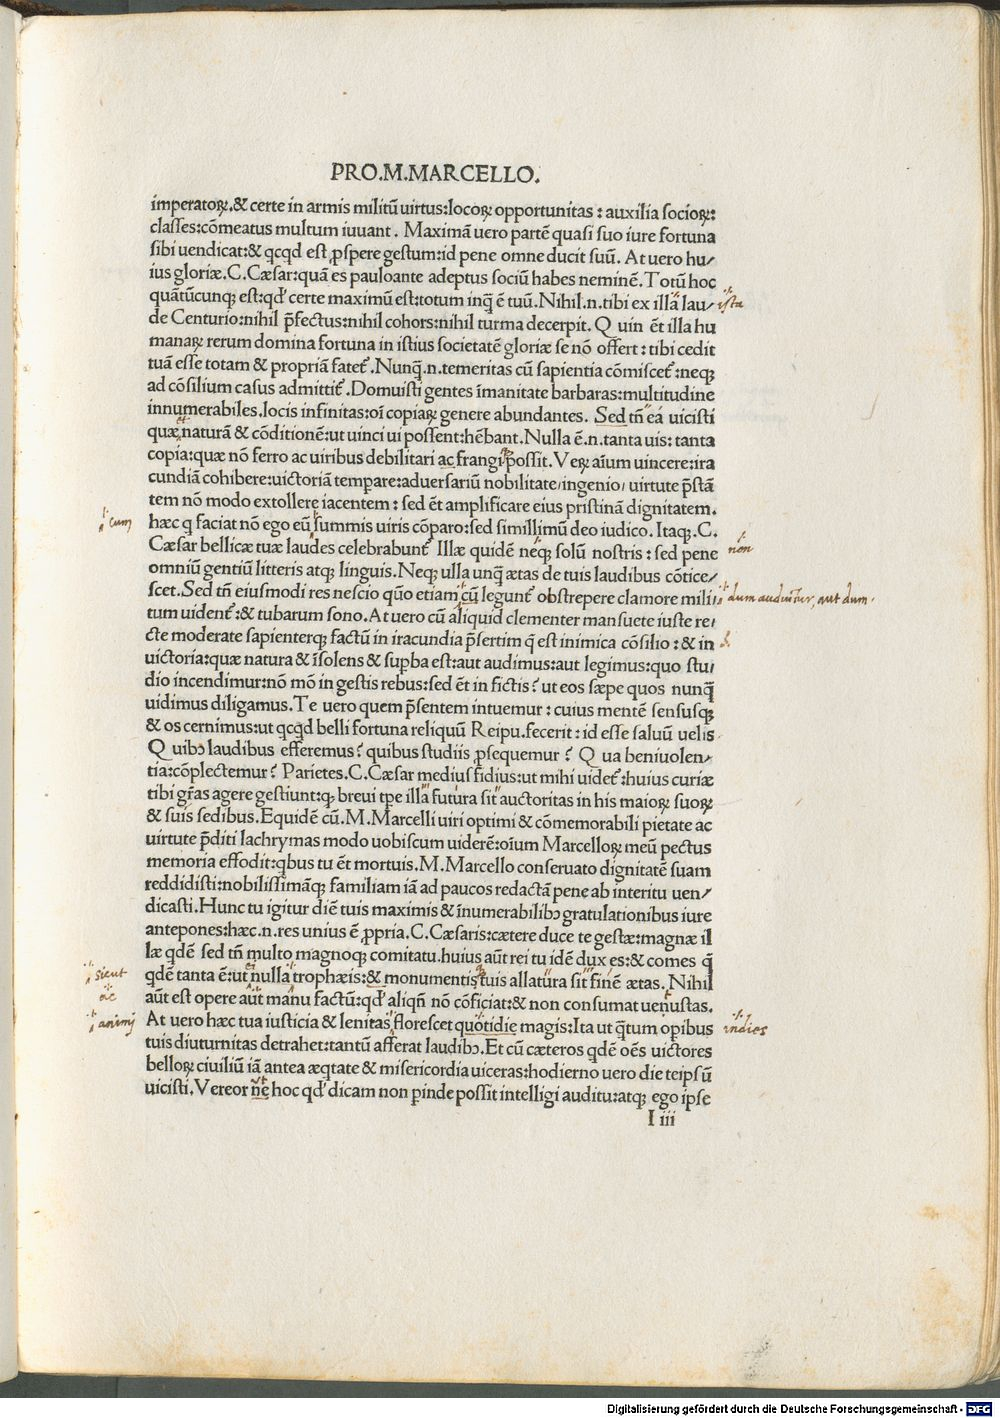 PRO.M.MARCELLO.
imperatoꝝ.& certe in armis militũ uirtus:locoꝝ opportunitas : auxilia socioꝝ:
classes:cõmeatus multum iuuant . Maximã uero partẽ quasi suo iure fortuna
sibi uendicat:& qcqd est ꝓspere gestum:id pene omne ducit suũ. At uero hu/
ius gloriæ.C.Cæsar:quã es pauloante adeptus sociũ habes neminẽ.Totũ hoc
quãtũcunqꝫ est:qd' certe maximũ est:totum inq̃ ẽ tuũ.Nihil.n.tibi ex illa lau/ ista
de Centurio:nihil p̃fectus:nihil cohors:nihil turma decerpit. Q uin ẽt illa hu
manaꝝ rerum domina fortuna in istius societatẽ gloriæ se nõ offert : tibi cedit
tuã esse totam & propriã fatet᷑.Nunq̃.n.temeritas cũ sapientia cõmiscet᷑:neqꝫ
ad cõsilium casus admittit᷑.Domuisti gentes ĩmanitate barbaras:multitudine
innumerabiles.locis infinitas:oĩ copiaꝝ genere abundantes. Sed tñ ea uicisti
quæ et naturã & cõditionẽ:ut uinci ui possent:hẽbant.Nulla ẽ.n.tanta uis: tanta
copia:quæ nõ ferro ac uiribus debilitari ac frangi possit.Veꝝ aĩum uincere:ira
cundiã cohibere:uictoriã tempare:aduersariũ nobilitate/ingenio/ uirtute p̃stã
tem nõ modo extollere iacentem : sed ẽt amplificare eius pristinã dignitatem.
cum hæc q faciat nõ ego eũ summis uiris cõparo:sed simillimũ deo iudico. Itaqꝫ.C.
Cæsar bellicæ tuæ laudes celebrabunt᷑ Illæ quidẽ neqꝫ solũ nostris : sed pene non
omniũ gentiũ litteris atqꝫ linguis.Neqꝫ ulla unq̃ ætas de tuis laudibus cõtice/
scet.Sed tñ eiusmodi res nescio quõ etiam cũ legunt᷑ obstrepere clamore mili/ dum audiuntur, aut dum
tum uident᷑:& tubarum sono.At uero cũ aliquid clementer mansuete iuste re/
cte moderate sapienterqꝫ factũ in iracundia p̃sertim q̃ est inimica cõsilio : & in
uictoria:quæ natura & ĩsolens & supba est:aut audimus:aut legimus:quo stu/
dio incendimur:nõ mõ in gestis rebus:sed ẽt in fictis? ut eos sæpe quos nunq̃
uidimus diligamus.Te uero quem p̃sentem intuemur : cuius mentẽ sensusqꝫ
& os cernimus:ut qcqd belli fortuna reliquũ Reipu.fecerit : id esse saluũ uelis
Q uibꝰ laudibus efferemus? quibus studiis ꝓsequemur? Q ua beniuolen/
tia:cõplectemur? Parietes.C.Cæsar medius fidius:ut mihi uidet᷑:huius curiæ
tibi gr̃as agere gestiunt:qꝫ breui tp̃e illa futura sit auctoritas in his maioꝝ suoꝝ
& suis sedibus.Equidẽ cũ.M.Marcelli uiri optimi & cõmemorabili pietate ac
uirtute p̃diti lachrymas modo uobiscum uiderẽ:oĩum Marcelloꝝ meũ pectus
memoria effodit:qbus tu ẽt mortuis.M.Marcello conseruato dignitatẽ suam
reddidisti:nobilissimãqꝫ familiam iã ad paucos redactã pene ab interitu uen/
dicasti.Hunc tu igitur diẽ tuis maximis & ĩnumerabilibꝰ gratulationibus iure
antepones:hæc.n.res unius ẽ ꝓpria.C.Cæsaris:cætere duce te gestæ:magnæ il
læ qdẽ sed tñ multo magnoqꝫ comitatu.huius aũt rei tu idẽ dux es:& comes q̃
sicut qdẽ tanta ẽ:ut nulla trophæis:& monumentis tuis allatura sit finẽ ætas. Nihil
aũt est opere aut manu factũ:qd' aliqñ nõ cõficiat:& non consumat uenustas.
animi At uero hæc tua iusticia & lenitas florescet quotidie magis:Ita ut q̃tum opibus indies
tuis diuturnitas detrahet:tantũ afferat laudibꝰ.Et cũ cæteros qdẽ oẽs uictores
belloꝝ ciuiliũ iã antea æqtate & misericordia uiceras:hodierno uero die teipsũ
uicisti.Vereor ne hoc qd' dicam non pinde possit intelligi auditu:atqꝫ ego ipse
I iii
Digitalisierung gefördert durch die Deutsche Forschungsgemeinschaft - DFG